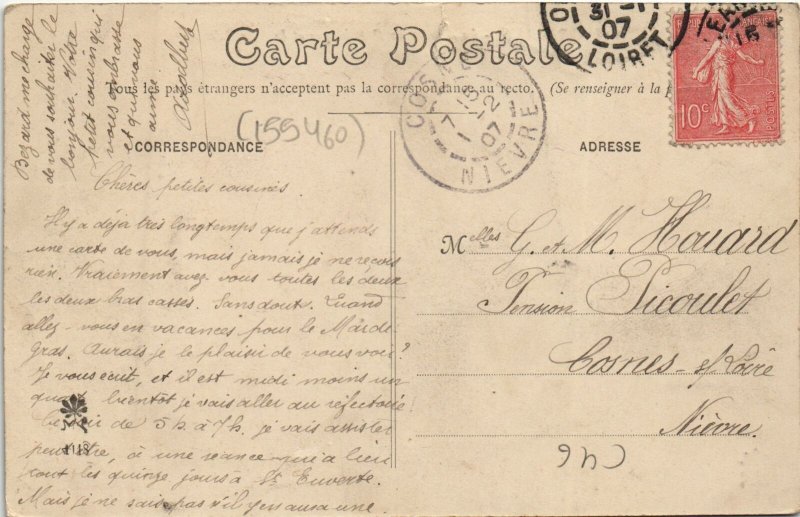 Carte Postale
Tous les pays étrangers n'acceptent pas la correspondance au recto. (Se renseigner à la
CORRESPONDANCE
ADRESSE
(155460)
31-1
07
LOIRET
COSNE
7 15
1-2
07
NIÈVRE
REPUBLIQUE FRANÇAISE
10c
POSTES
Chères petites cousines
Il y a déja très longtemps que j'attends
une carte de vous, mais jamais je ne reçois
rien. Vraiement avez vous toutes les deux
les deux bras cassés. Sans dout. Quand
allez-vous en vacances pour le Mardi-
gras. Aurais je le plaisir de vous voir?
Je vous écrit, et il est midi moins un
quart bientôt je vais aller au réfectoire
Le soir de 5h à 7h. je vais assister
peut être, à une séance qui a lieu
tout les quinze jours à St Euverte.
Mais je ne sais pas s'il y en aura une.
Bezard me charge
de vous souhaiter le
bonjour. Votre
petit cousin qui
vous embrasse
et qui vous
aime
Melles G. et M. Houard
Pension Picoulet
Cosnes-s/Loire
Nièvre.
C46